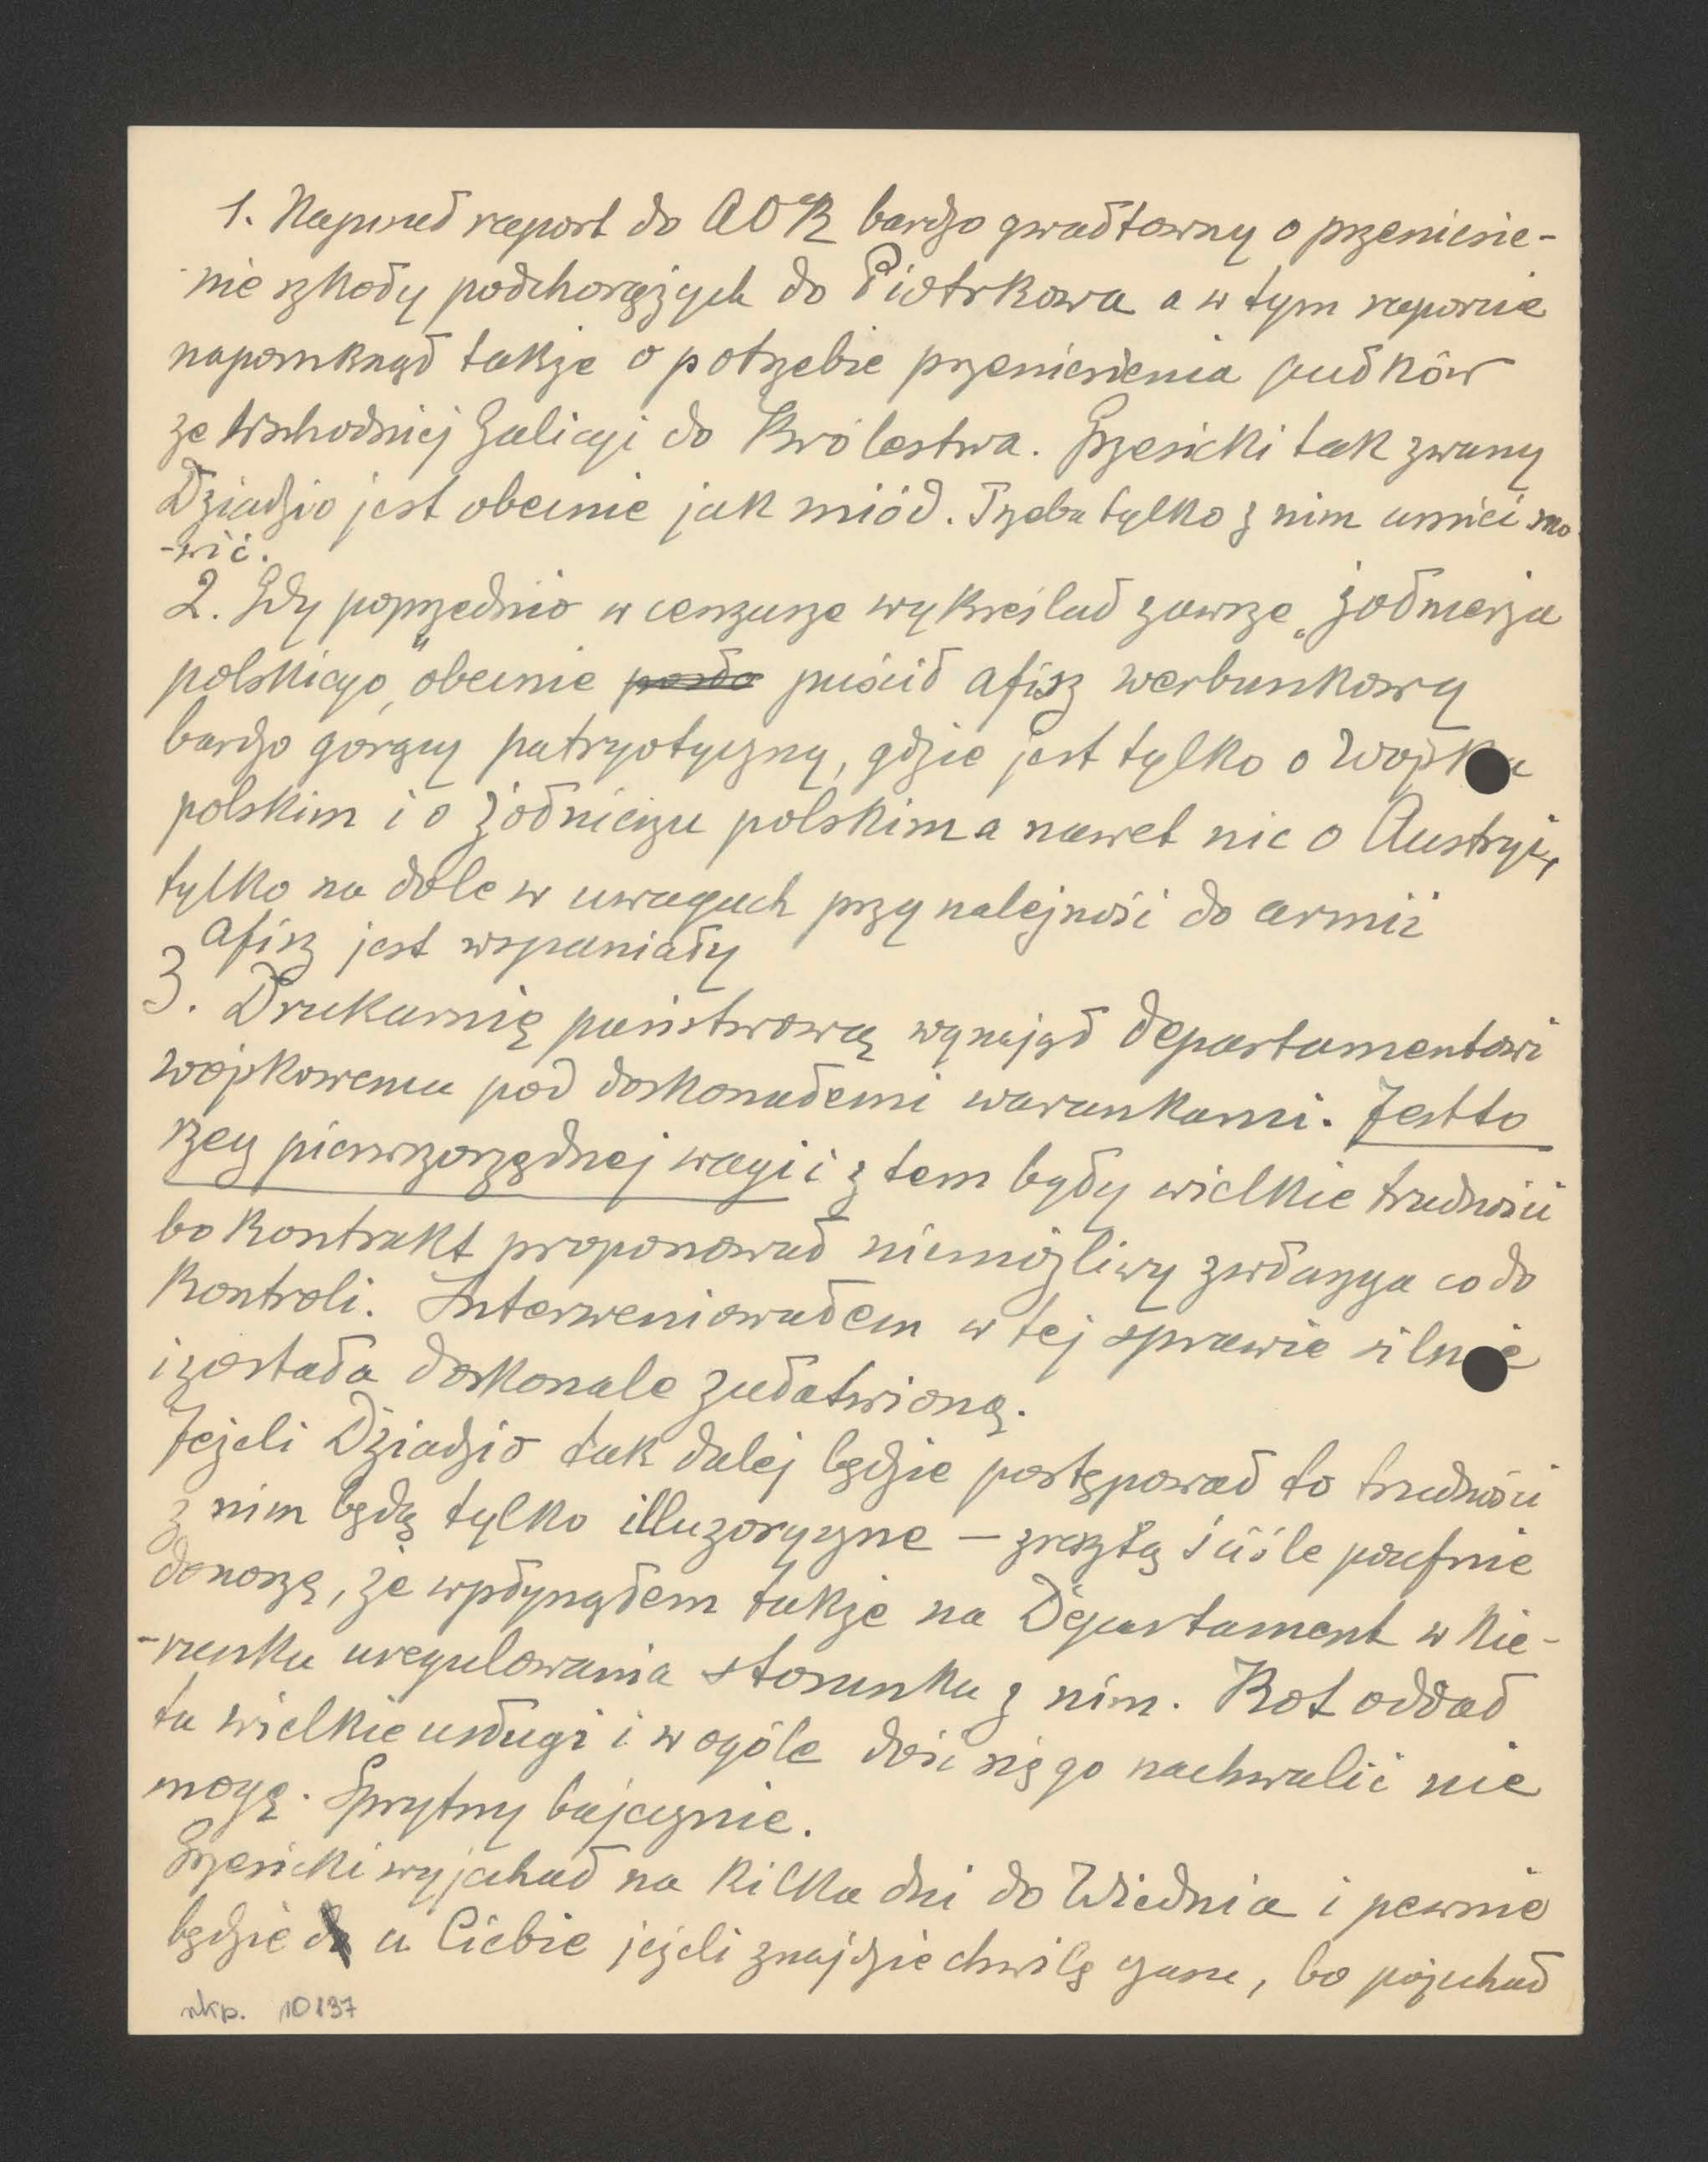 1. Napisał raport do AOK bardzo gwałtowny o przeniesie-
-nie szkoły podchorążych do Piotrkowa a w tym raporcie
napomknął także o potrzebie przeniesienia pułków
ze Wschodniej Galicyi do Królestwa. Grzesicki tak zwany
Dziadzio jest obecnie jak miód. Trzeba tylko z nim umieć mó
-wić.
2. Gdy poprzednio w cenzurze wykreślał zawsze „żołnierza
polskiego" obecnie puścił afisz werbunkowy
bardzo gorący patryotyczny, gdzie jest tylko o Wojsku
polskim i o żołnierzu polskim a nawet nic o Austryi,
tylko na dole w uwagach przynależności do armii
Afisz jest wspaniały
3. Drukarnię państwową wynajął Departamentowi
wojskowemu pod doskonałemi warunkami. Jestto
rzecz pierwszorzędnej wagi i z tem były wielkie trudności
bo kontrakt proponował niemożliwy zwłaszcza co do
kontroli. Interweniowałem w tej sprawie silnie
i została doskonale załatwioną.
Jeżeli Dziadzio tak dalej będzie postępował to trudności
z nim będą tylko illuzoryczne – zresztą ściśle poufnie
donoszę, że wpłynąłem także na Departament w kie-
-runku uregulowania stosunku z nim. Kot oddał
tu wielkie usługi i wogóle dość się go nachwalić nie
mogę. Sprytny bajecznie.
Grzesicki wyjechał na kilka dni do Wiednia i pewnie
będzie u Ciebie jeżeli znajdzie chwilę czasu, bo pojechał
rkp. 10137